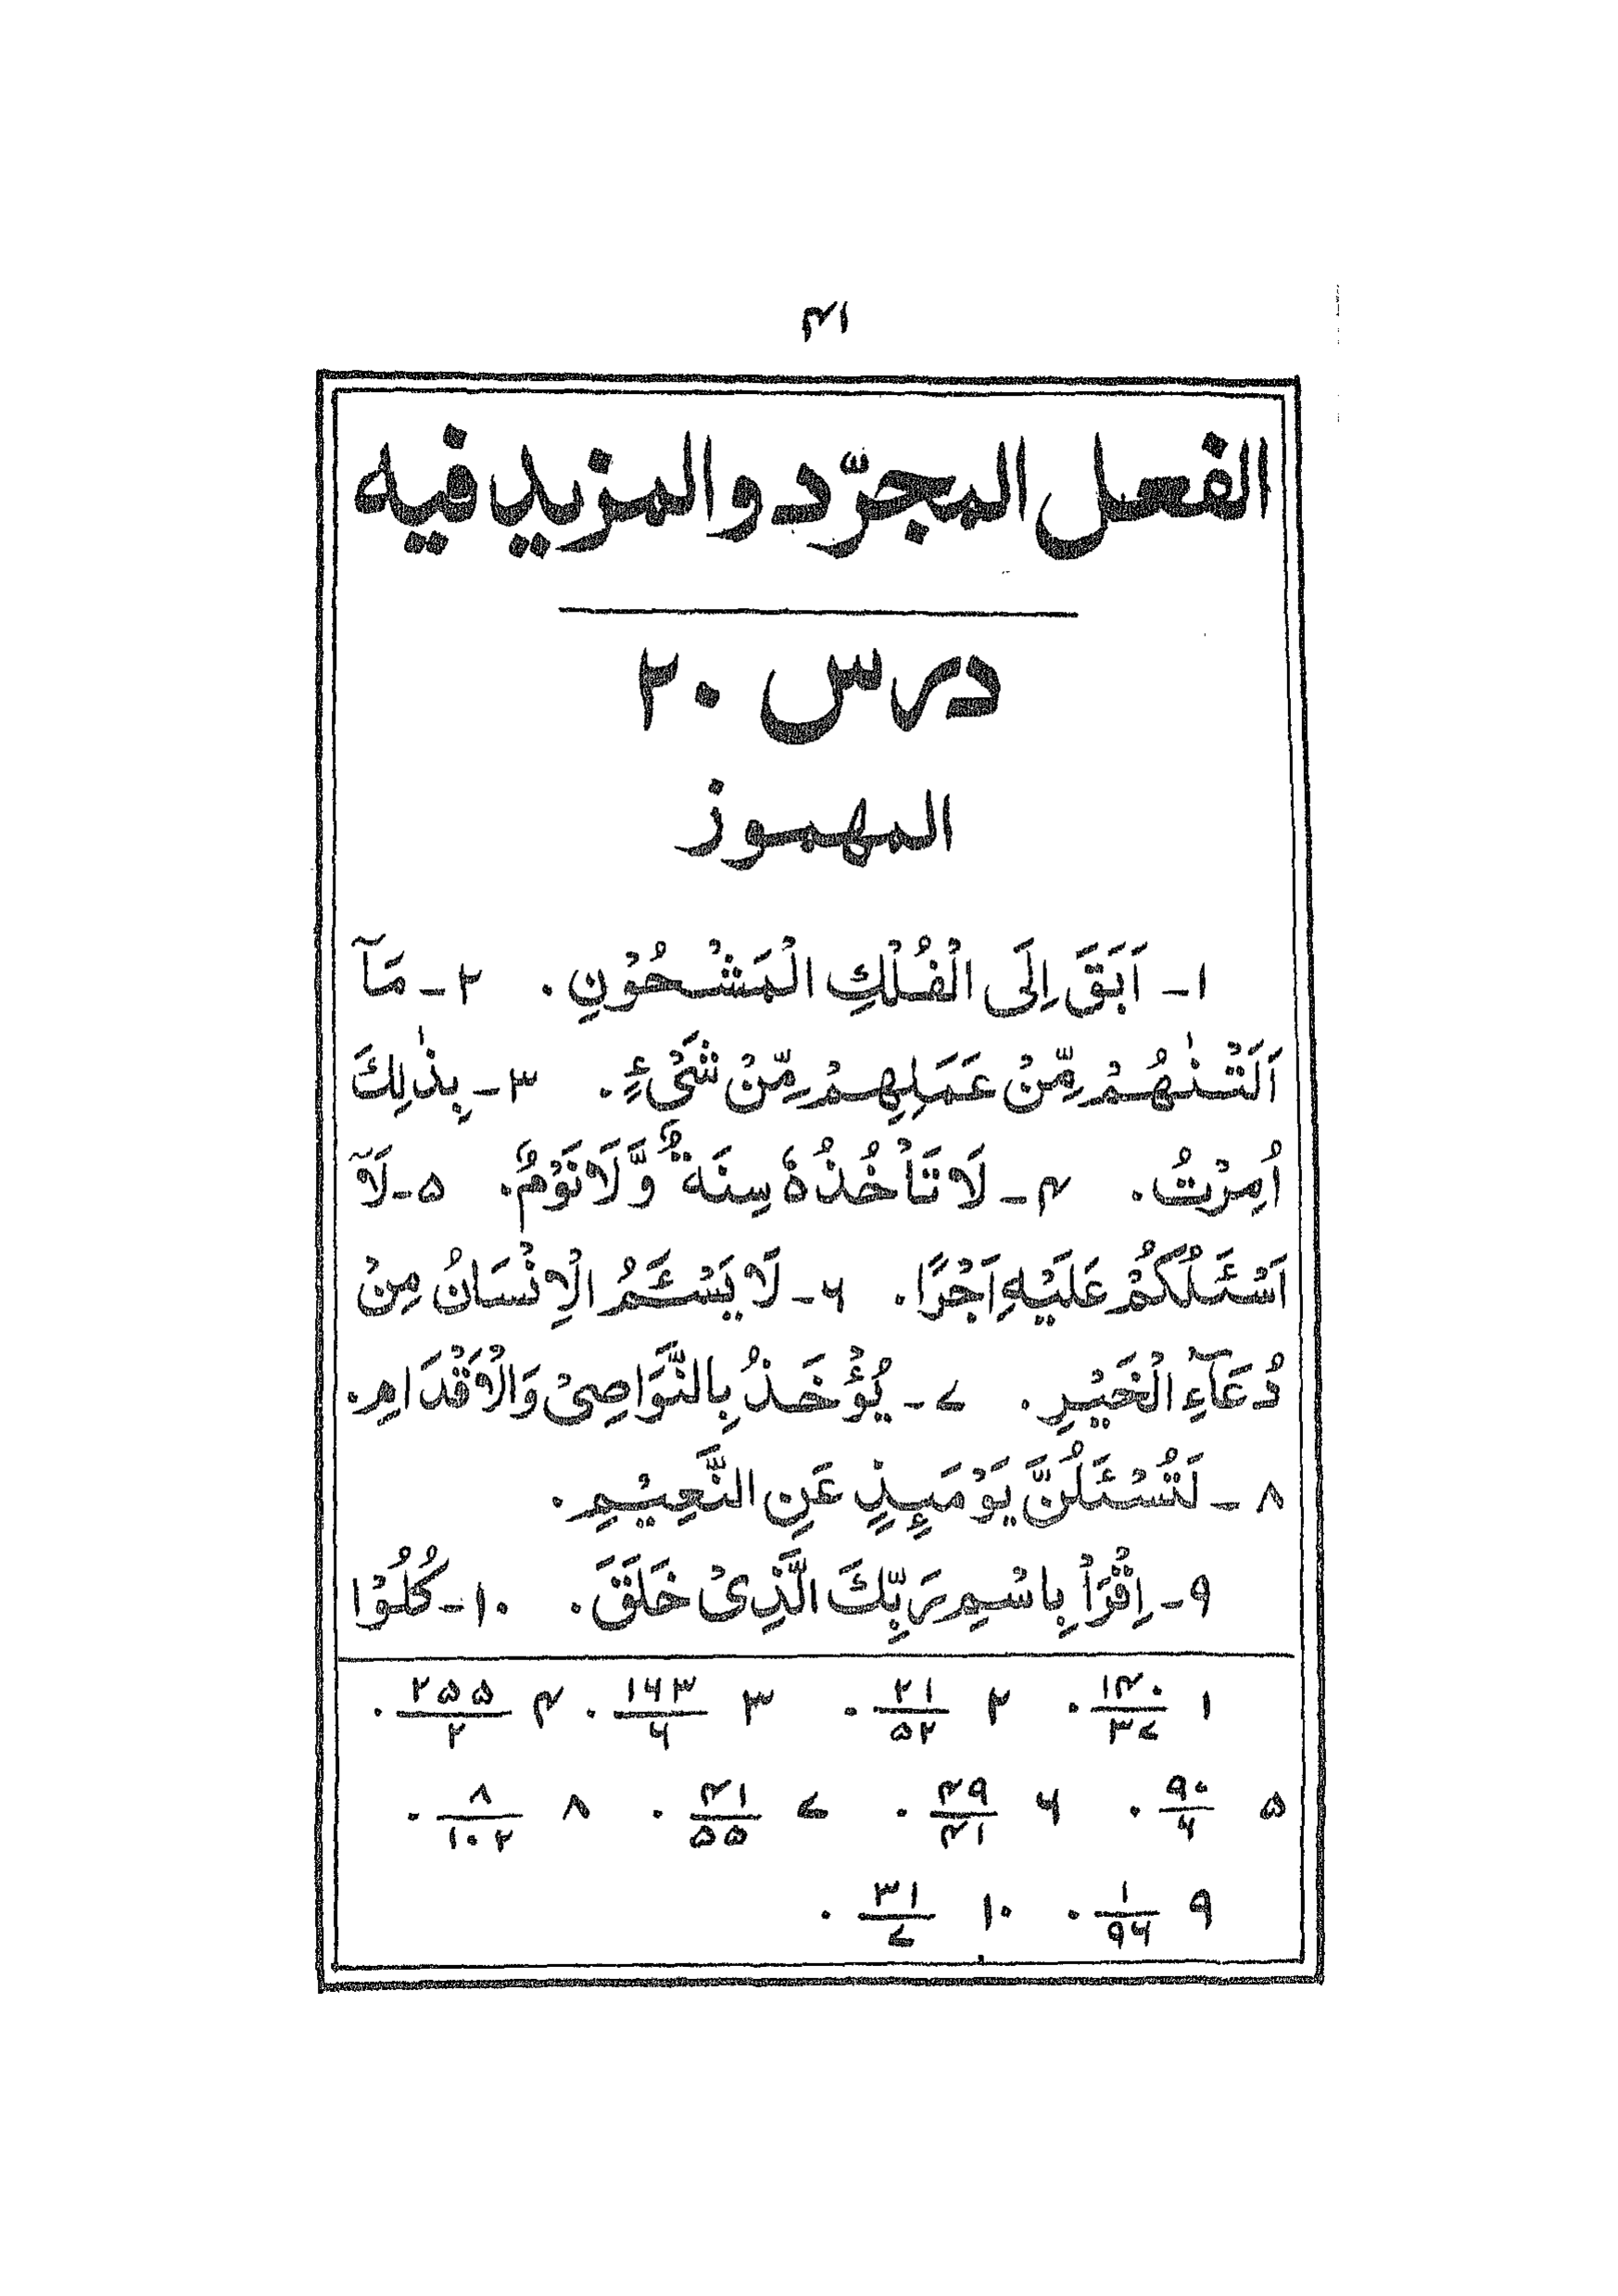 ۴۱
الفعل المجرّد والمزيد فيه
درس ۲۰
المهموز
۱- اَبَقَ اِلَى الْفُلْكِ الْمَشْحُوْنِ. ۲- مَآ
اَلَتْنٰهُمْ مِّنْ عَمَلِهِمْ مِّنْ شَیْءٍ. ۳- بِذٰلِكَ
اُمِرْتُ. ۴- لَا تَاْخُذُهٗ سِنَةٌ وَّلَا نَوْمٌ. ۵- لَآ
اَسْئَلُكُمْ عَلَيْهِ اَجْرًا. ۶- لَا يَسْئَمُ الْاِنْسَانُ مِنْ
دُعَآءِ الْخَيْرِ. ۷- يُؤْخَذُ بِالنَّوَاصِیْ وَالْاَقْدَامِ.
۸- لَتُسْئَلُنَّ يَوْمَىِٕذٍ عَنِ النَّعِيْمِ.
۹- اِقْرَاْ بِاسْمِ رَبِّكَ الَّذِیْ خَلَقَ. ۱۰- كُلُوْا
۱ ۱۴۰/۳۷. ۲ ۲۱/۵۲. ۳ ۱۶۳/۶. ۴ ۲۵۵/۲.
۵ ۹۰/۶. ۶ ۴۹/۴۱. ۷ ۴۱/۵۵. ۸ ۸/۱۰۲.
۹ ۱/۹۶. ۱۰ ۳۱/۷.